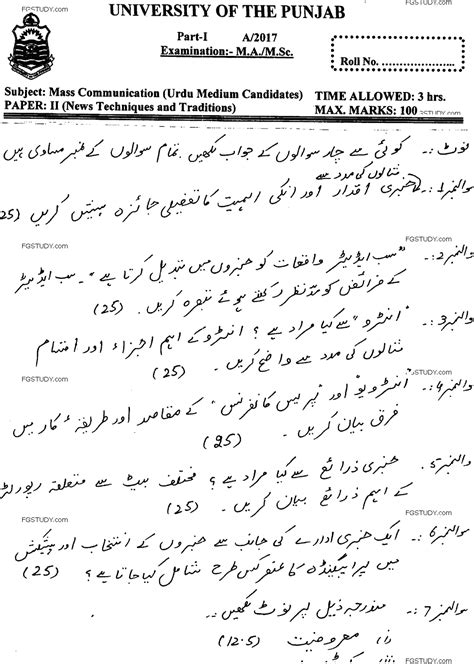 FGSTUDY.com FGSTUDY.com
UNIVERSITY OF THE PUNJAB
Part-I A/2017
Examination:- M.A./M.Sc.
Roll No. ........................
Subject: Mass Communication (Urdu Medium Candidates)
PAPER: II (News Techniques and Traditions)
TIME ALLOWED: 3 hrs.
MAX. MARKS: 100 FGSTUDY.com
نوٹ:۔ کوئی سے چار سوالوں کے جواب لکھیں۔ تمام سوالوں کے نمبر مساوی ہیں
مثالوں کی مدد سے
سوالنمبر 1:۔ خبری اقدار اور انکی اہمیت کا تفصیلی جائزہ پیش کریں (25)
FGSTUDY.com FGSTUDY.com
سوالنمبر 2:۔ "سب ایڈیٹر واقعات کو خبروں میں تبدیل کرتا ہے"۔ سب ایڈیٹر
کے فرائض کو مدنظر رکھتے ہوئے تبصرہ کریں۔ (25)
سوالنمبر 3:۔ "انٹرو" سے کیا مراد ہے؟ انٹرو کے اہم اجزاء اور اقسام
مثالوں کی مدد سے واضح کریں۔ (25)
FGSTUDY.com FGSTUDY.com
سوالنمبر 4:۔ "انٹرویو" اور "پریس کانفرنس" کے مقاصد اور طریقہء کار میں
فرق بیان کریں۔ (25)
سوالنمبر 5:۔ خبری ذرائع سے کیا مراد ہے؟ مختلف بیٹ سے متعلقہ رپورٹر
کے اہم ذرائع بیان کریں۔ (25)
FGSTUDY.com FGSTUDY.com
سوالنمبر 6:۔ ایک خبری ادارے کی جانب سے خبروں کے انتخاب اور پیشکش
میں پراپیگنڈہ کا عنصر کس طرح شامل کیا جاتا ہے؟ (25)
سوالنمبر 7:۔ مندرجہ ذیل پر نوٹ لکھیں:۔
(i) معروضیت (12.5)
FGSTUDY.com FGSTUDY.com